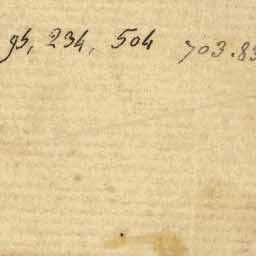 95, 234, 504 703.83